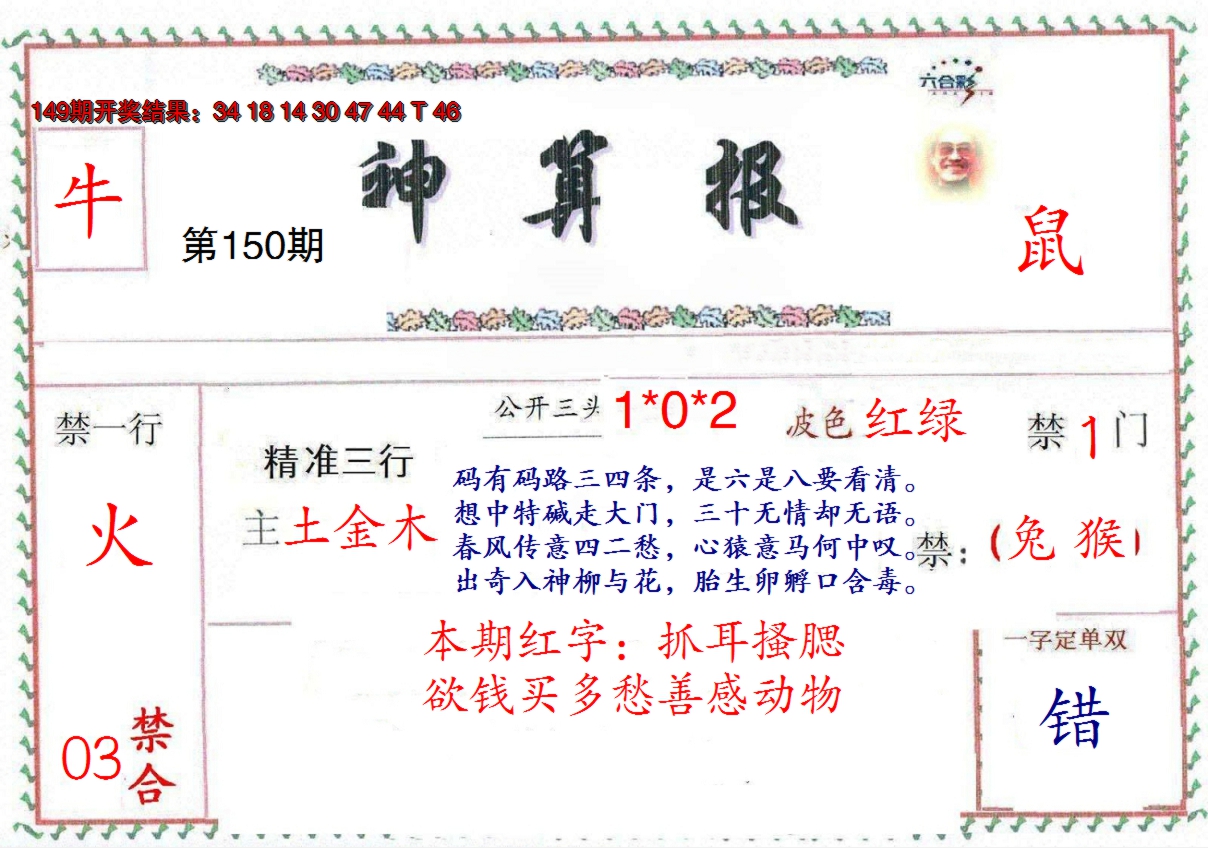 六合彩
149期开奖结果：34 18 14 30 47 44 T 46
神算报
牛
第150期
鼠
禁一行
火
03
禁合
公开三头 1*0*2
波色 红绿
禁 1 门
精准三行
主 土金木
码有码路三四条，是六是八要看清。
想中特碱走大门，三十无情却无语。
春风传意四二愁，心猿意马何中叹。
出奇入神柳与花，胎生卵孵口含毒。
禁：（兔 猴）
本期红字：抓耳搔腮
欲钱买多愁善感动物
一字定单双
错